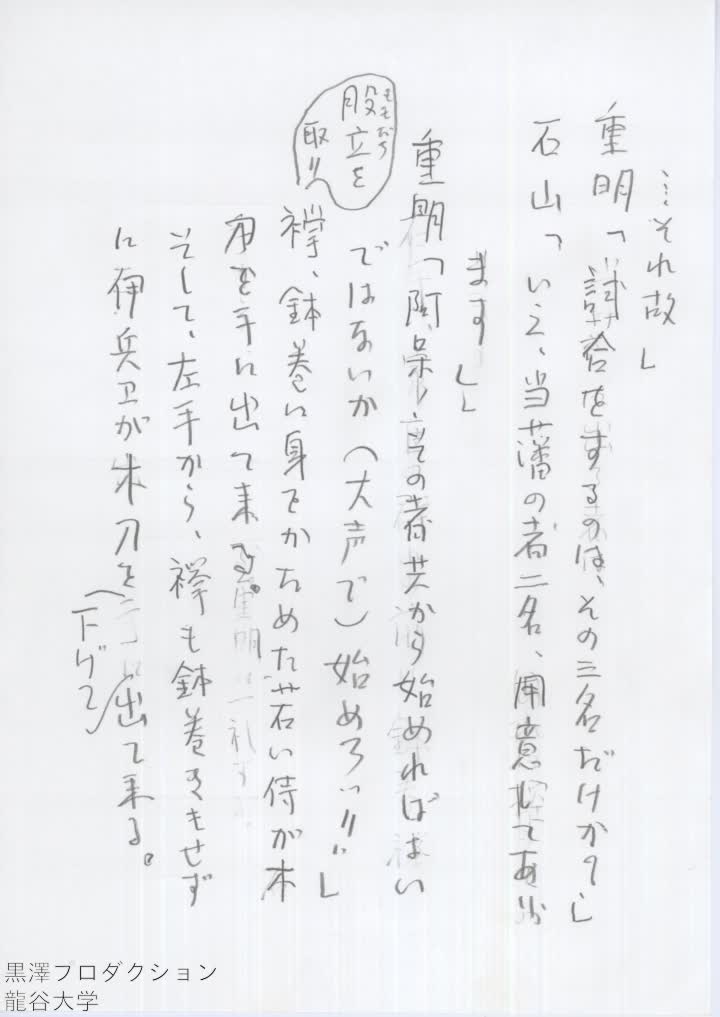 …それ故」
重明「試合をするのは、その三名だけか？」
石山「いえ、当藩の者二名、用意してあり
ます」
重明「阿呆！その者共から始めればよい
ではないか（大声で）始めろッ!!」
股立を
ももだち
取り
襷、鉢巻に身をかためた若い侍が木
刀を手に出て来る。
そして、左手から、襷も鉢巻きもせず
に伊兵卫が木刀を下げて出て来る。
黒澤プロダクション
龍谷大学